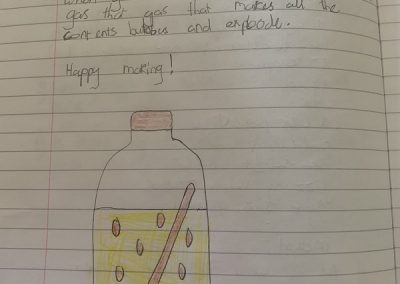 gas that gas that makes all the
contents bubbus and explode.
Happy making!